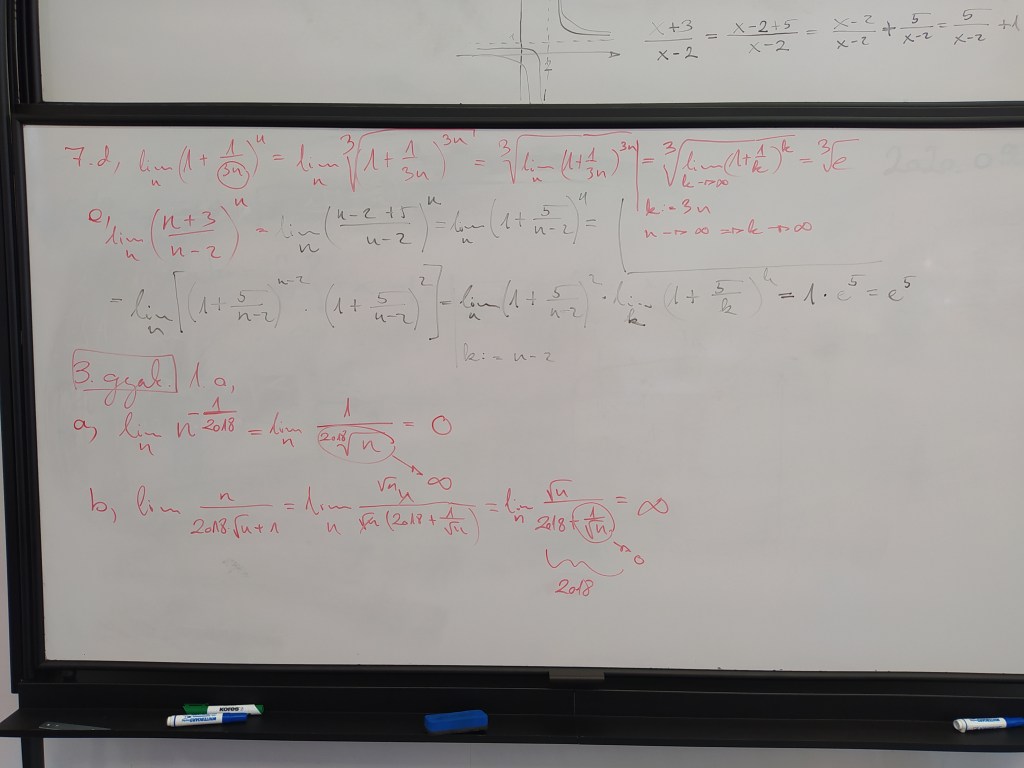 x+3/x-2 = x-2+5/x-2 = x-2/x-2 + 5/x-2 = 5/x-2 + 1
7.d, lim_n (1 + 1/3n)^n = lim_n ∛(1 + 1/3n)^3n = ∛lim_n (1 + 1/3n)^3n = ∛lim_k→∞ (1 + 1/k)^k = ∛e
k := 3n
n → ∞ ⇒ k → ∞
e, lim_n (n+3/n-2)^n = lim_n (n-2+5/n-2)^n = lim_n (1 + 5/n-2)^n =
= lim_n [(1 + 5/n-2)^n-2 · (1 + 5/n-2)^2] = lim_n (1 + 5/n-2)^2 · lim_k (1 + 5/k)^k = 1 · e^5 = e^5
k := n-2
3. gyak. 1.a,
a, lim_n n^-1/2018 = lim_n 1/²⁰¹⁸√n = 0
∞
b, lim n/2018·√n+1 = lim_n √n·√n/√n(2018 + 1/√n) = lim_n √n/2018 + 1/√n = ∞
0
2018